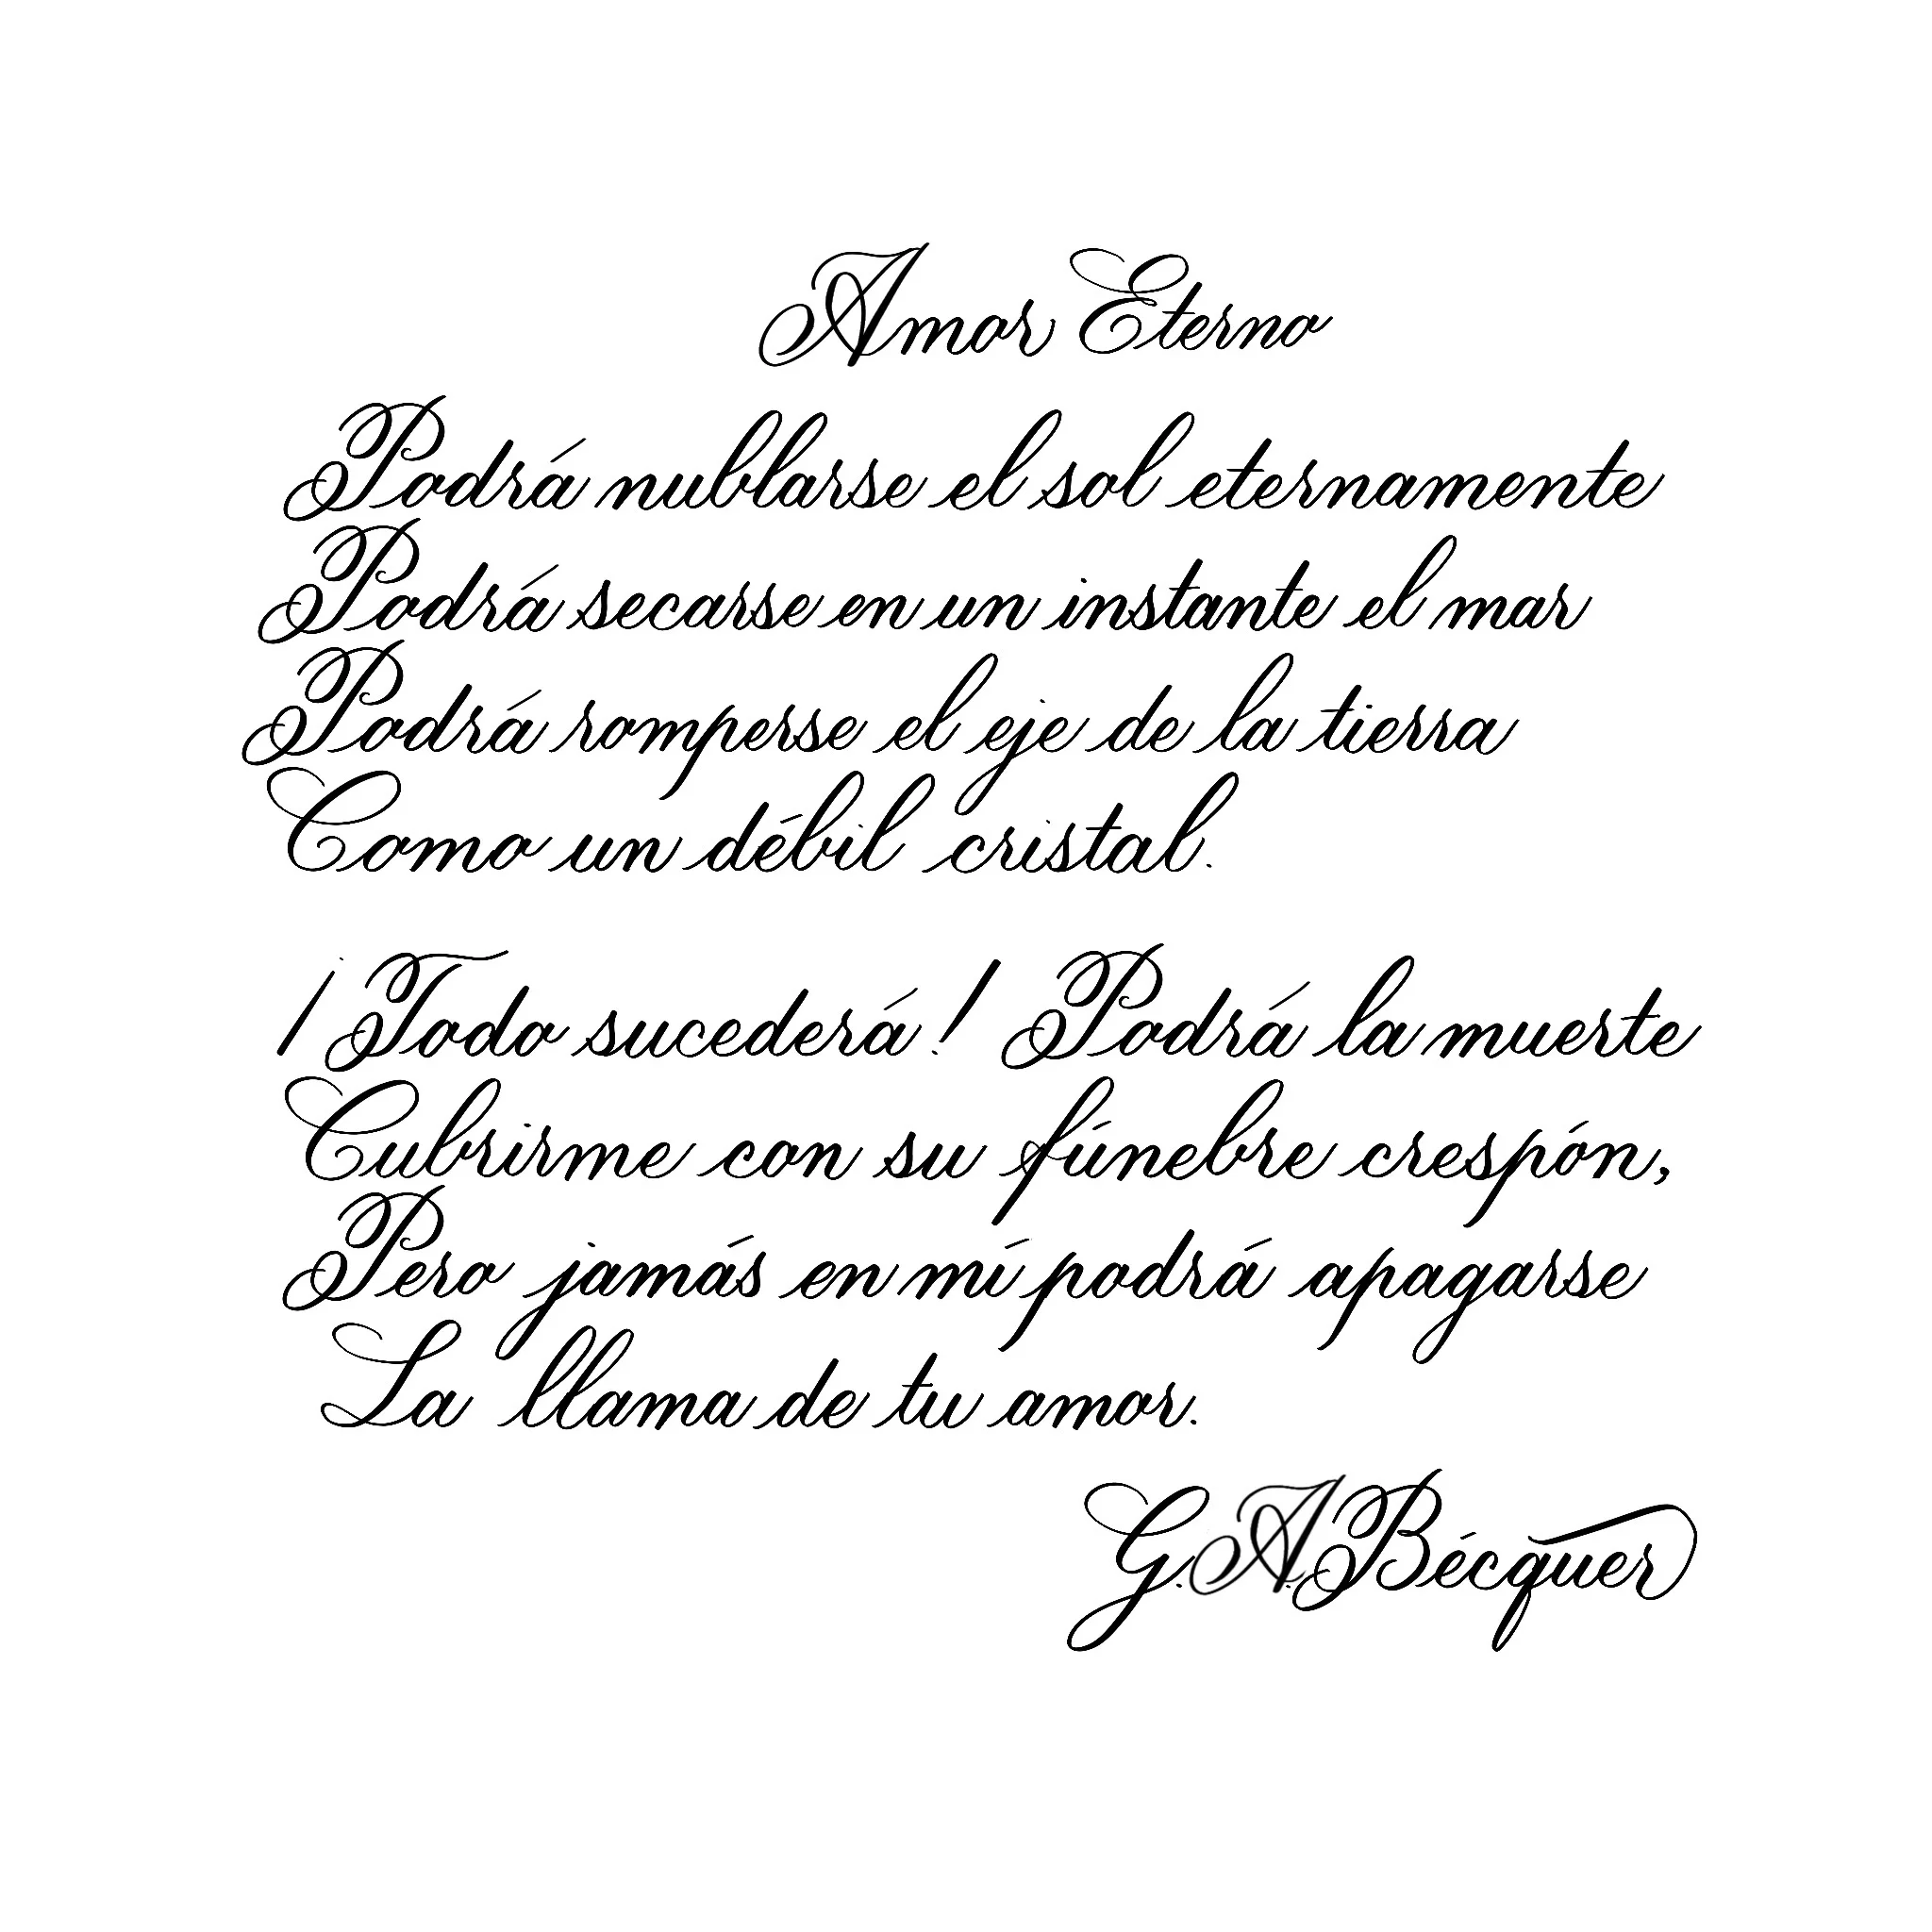 Amor Eterno
Podrá nublarse el sol eternamente
Podrá secarse en un instante el mar
Podrá romperse el eje de la tierra
Como un débil cristal.
¡Todo sucederá! Podrá la muerte
Cubrirme con su fúnebre crespón,
Pero jamás en mí podrá apagarse
La llama de tu amor.
G. A. Bécquer